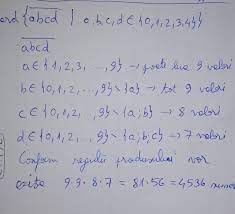 ord {abcd | a,b,c,d ∈ {0,1,2,3,4}}
abcd
a ∈ {1,2,3, ...,9} → poate lua 9 valori
b ∈ {0,1,2, ...,9} \ {a} → tot 9 valori
c ∈ {0,1,2, ...,9} \ {a;b} → 8 valori
d ∈ {0,1,2, ...,9} \ {a;b;c} → 7 valori
Conform regulii produsului vor
exista 9·9·8·7 = 81·56 = 4536 numere